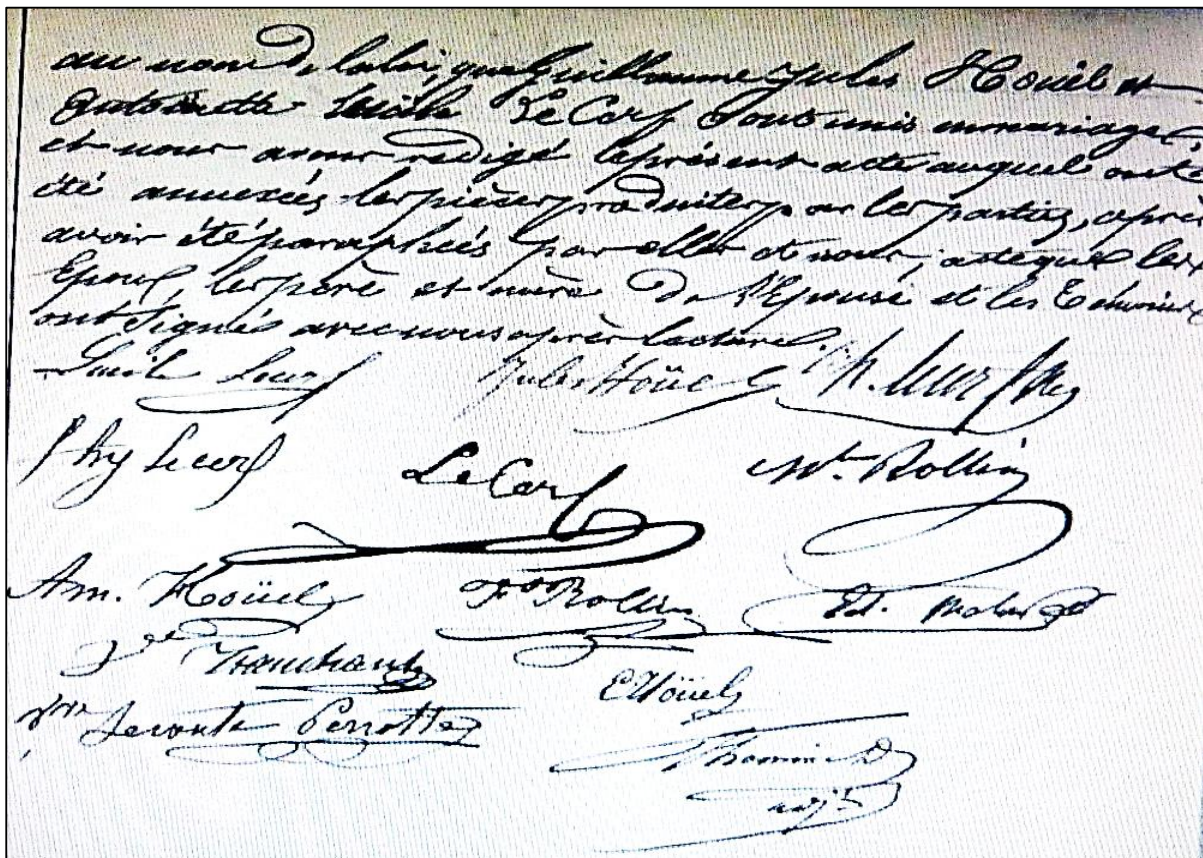 au nom de la loi, que Guillaume Jules Hoüel et
Antoinette Lucile Le Cerf sont unis en mariage,
et nous avons redigé le présent acte auquel ont
été annexés les pièces produites par les parties, après
avoir été paraphées par elles et nous, acte que les
Epoux, les père et mère de l'Epouse et les Témoins
ont signé avec nous après lecture.
Lucile Lecerf Jules Hoüel
Lecerf Le Cerf Mt. Rollin
Am. Hoüel Rollin Ed.
Tranchant E Hoüel
Leconte Perrotte
Thomine
adjt